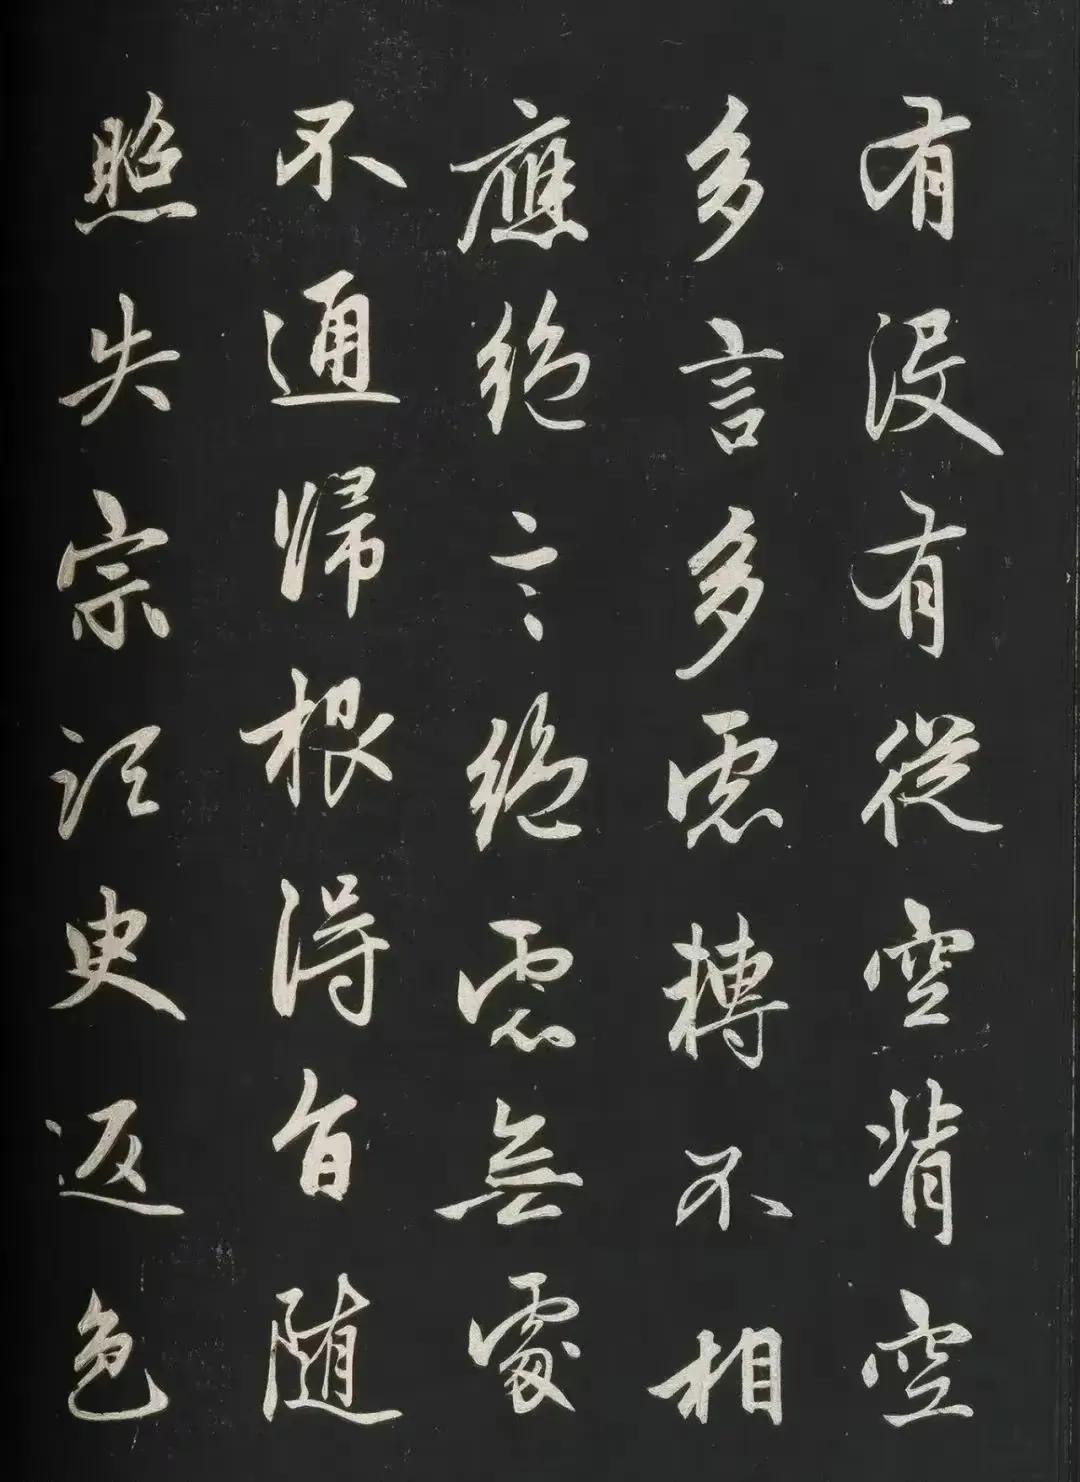 有没有從空背空
多言多慮轉不相
應絕言絕慮無處
不通歸根得旨随
照失宗須臾返色